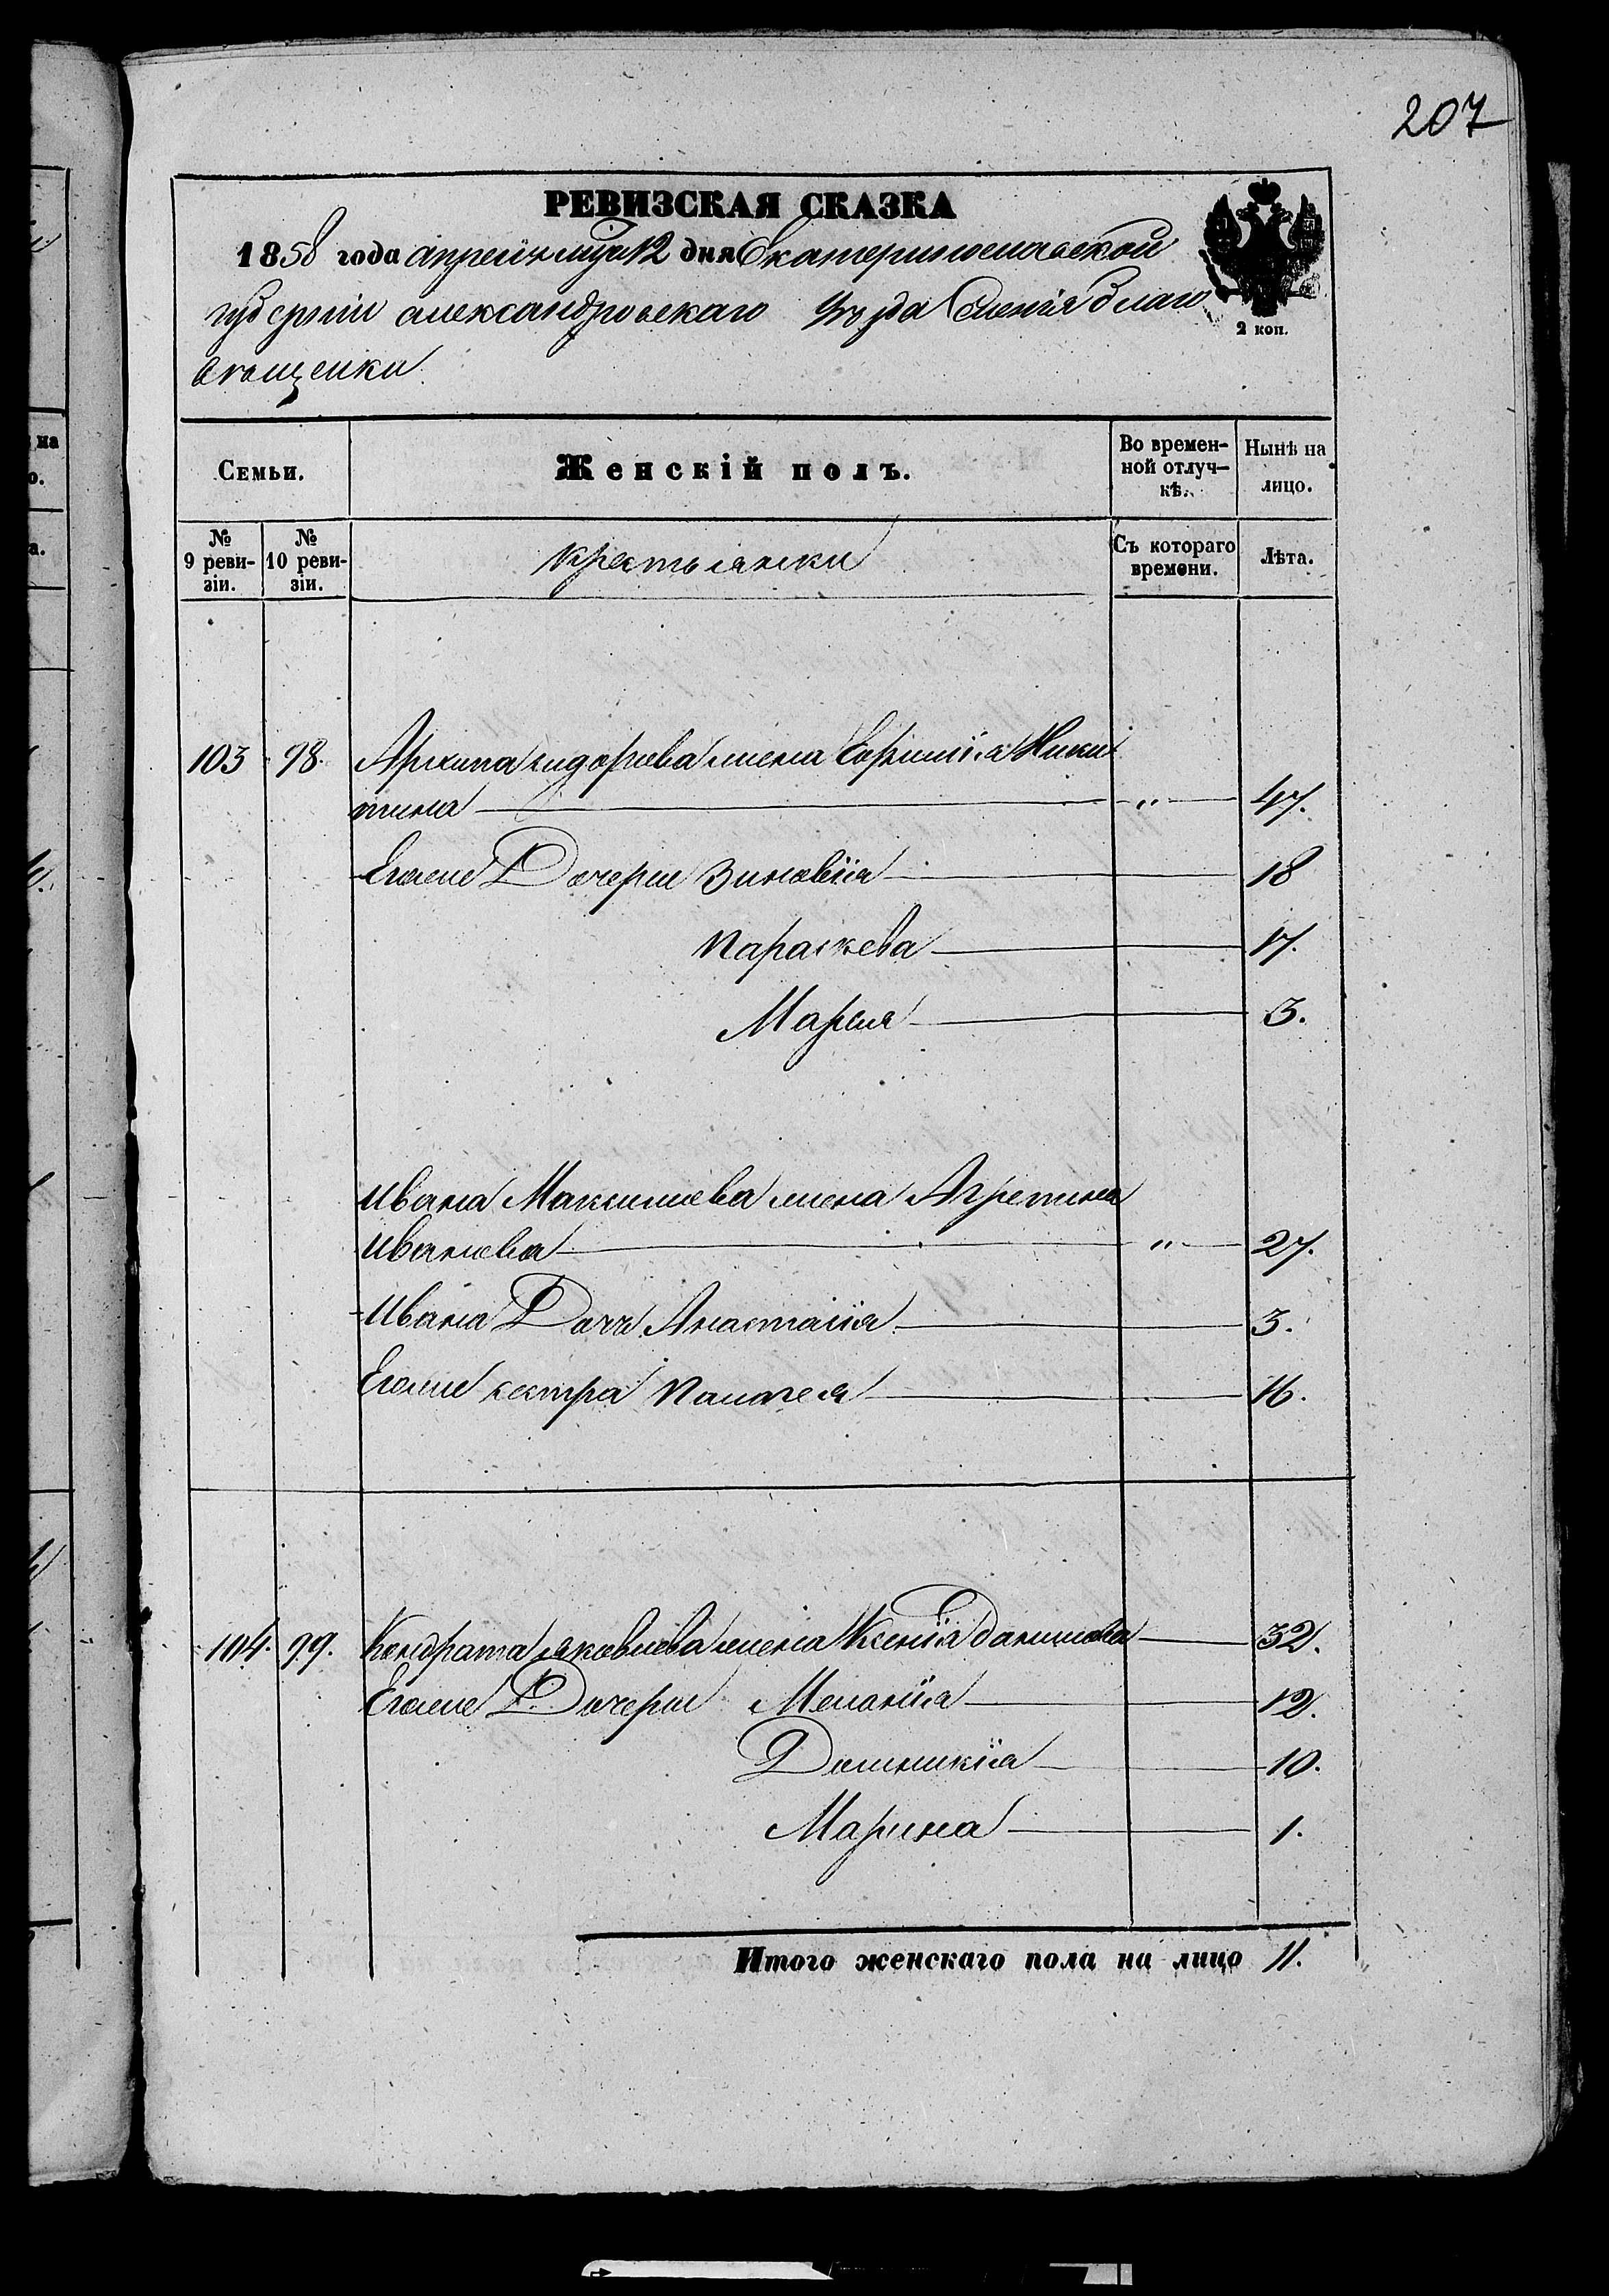 207
РЕВИЗСКАЯ СКАЗКА
1858 года апреля мца 12 дня Екатеринославской
губернии александровскаго уезда Селенія Благо
вещенки
2 коп.
Семьи.
Женскій полъ.
Во времен-
ной отлуч-
кѣ.
Нынѣ на
лицо.
№
9 реви-
зіи.
№
10 реви-
зіи.
крестьянки
Съ котораго
времени.
Лѣта.
103 98. Архипа сидорова жена Евфимія Ники
тина " 47.
Егоже Дочери Зиновія 18
Параскева 17.
Мария 3.
Ивана Максимова жена Агрепина
Иванова " 27.
Ивана Дочь Анастасія 3.
Егоже сестра Палагея 16.
104. 99. Кондрата яковлева жена Ксенія данилова 32.
Егоже Дочери Меланія 12.
Домникія 10.
Марина 1.
Итого женскаго пола на лицо 11.